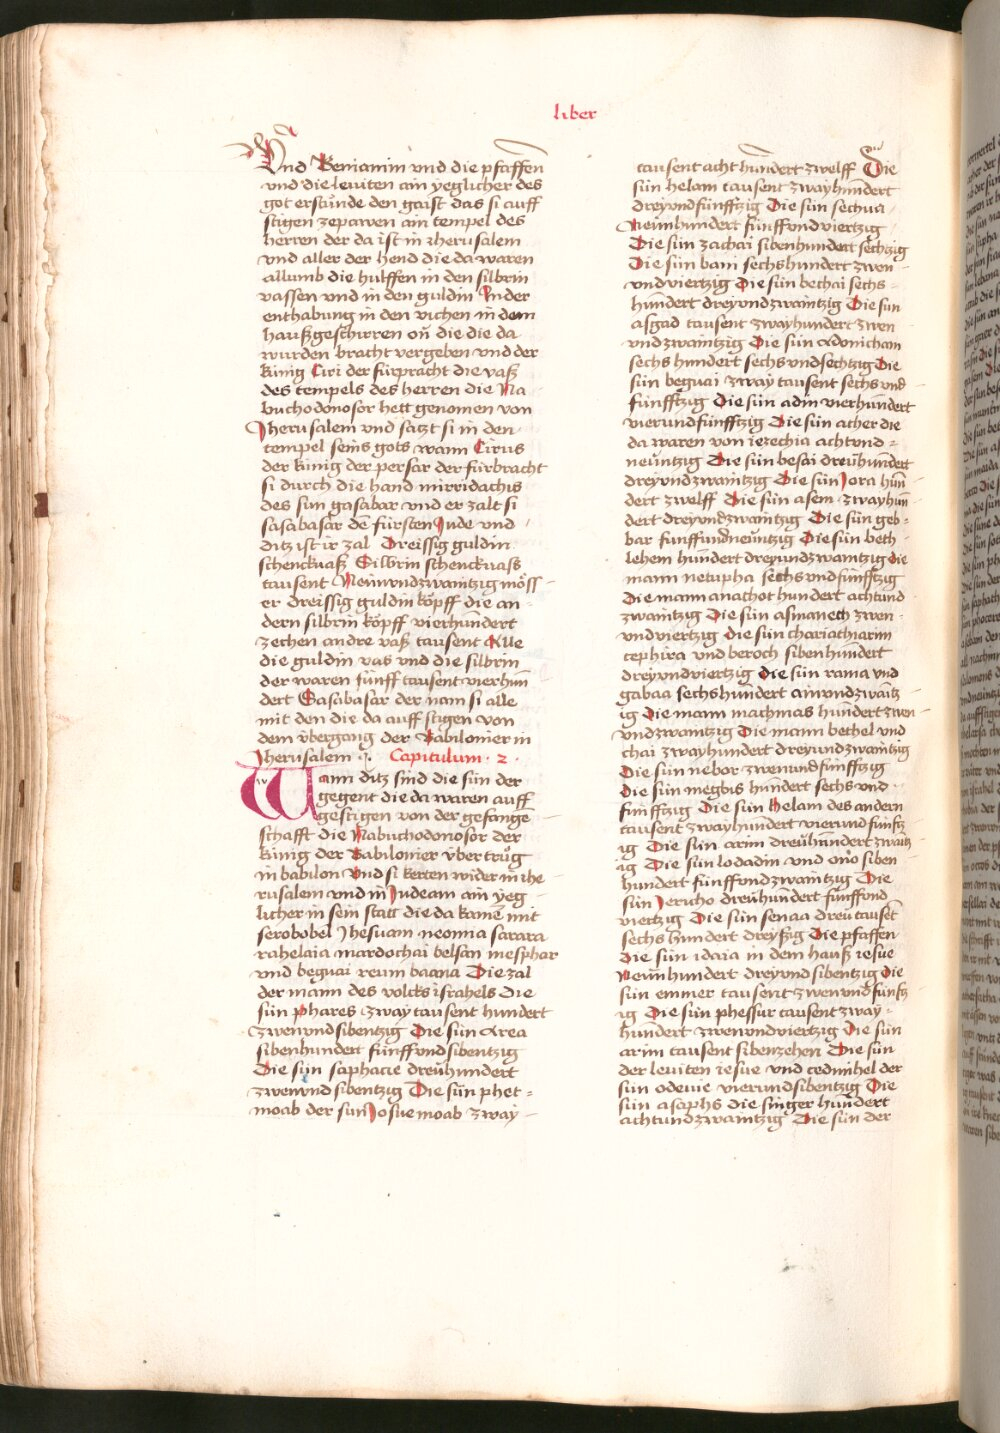 liber
Und Beniamin vnd die pfaffen
vnd die leuiten ain yeglicher des
got erstünde den gaist das si auff
stigen zepawen ain tempel des
herren der da ist in iherusalem
vnd aller der hend die da waren
allumb die hulffen in den silbrin
vassen vnd in den guldin In der
enthabung in den vichen in dem
haußgeschirren on̄ die die da
wurden bracht vergeben vnd der
künig Ciri der fürpracht die vaß
des tempels des herren die Na
buchodonosor hett genomen von
Jherusalem vnd satzt si in den
tempel seins gots wann Cirus
der künig der persar der fürbracht
si durch die hand mirridachis
des sun gasabar vnd er zalt si
sasabasar dē fürsten Jude vnd
ditz ist ir zal Dreissig guldin
schenckuaß Silbrin schenckuass
tausent Neinvndzwaintzig möss
er dreissig guldin köpff die an
dern silbrin köpff vierhundert
zechen andre vaß tausent Alle
die guldin vas vnd die silbrin
der waren fünff tausent vierhun
dert Sasabasar der nam si alle
mit den die da auff stigen von
dem vbergang der Babilonier in
Jherusalem Capitulum · 2 ·
Wann ditz sind die sün der
gegent die da waren auff
gestigen von der gefangē
schafft die Nabuchodonosor der
künig der Babilonier vbertrůg
in babilon Vnd si kerten wider in ihe
rusalem vnd in Judeam ain yeg
licher in sein statt die da kamē mit
serobobel Jhesuam neomia sarara
rahelaia mardochai belsan mesphar
vnd beguai reum baana Die zal
der mann des volcks israhels Die
sün Phares zway tausent hundert
zwenvndsibentzig Die sün Area
sibenhundert fünffvndsibentzig
Die sün saphacie dreühundert
zwenvnd sibentzig Die sün phet-
moab der sun Josue moab zway
tausent acht hundert zwelff Die
sün helam tausent zwayhundert
dreyvndfünfftzig Die sün sechua
Neünhundert fünffvndviertzig
Die sün zachai sibenhundert sechtzig
Die sün bani sechshundert zwen
vndviertzig Die sün bechai sechs-
hundert dreyvndzwaintzig Die sün
asgad tausent zwayhundert zwen
vndzwaintzig Die sün Adonicham
sechs hundert sechsvndsechtzig Die
sün beguai zway tausent sechs vnd
fünfftzig Die sün adin vierhundert
vierundfünfftzig Die sün acher die
da waren von iezechia achtvnd-
neüntzig Die sün besai dreühundert
dreyvndzwaintzig Die sün Jora hūn
dert zwelff Die sün asem zwayhun
dert dreyvndzwaintzig Die sün geb-
bar fünffundneüntzig Die sün beth-
lehem hundert dreyundzwaintzig Die
mann netupha sechsvndfünfftzig
Die mann anathot hundert achtund
zwaintzig Die sün asmaneth zwen-
vndviertzig Die sün chariathiarim
cephira vnd beroch sibenhundert
dreyvndviertzig Die sün rama vnd
gabaa sechshundert ainvndzwaītz
ig Die mann machmas hundert zwen-
vndzwaintzig Die mann bethel vnd
chai zwayhundert dreyundzwaintzig
Die sün nebor zwenundfünfftzig
Die sün megbis hundert sechs vnd-
fünfftzig Die sün Helam des andern
tausent zwayhundert vierundfünftz
ig Die sün arim dreühundert zwaītz
ig Die sün lodadin vnd ono siben
hundert fünffvndzwaintzig Die
sün Jericho dreühundert fünffvnd
viertzig Die sün senaa dreü tausēt
sechs hundert dreyßig Die pfaffen
Die sün idaia in dem hauß iesue
Neünhundert dreyvnd sibentzig Die
sün emmer tausent zwenvndfünftz
ig Die sün phessur tausent zway-
hundert zwenvndviertzig Die sün
arim tausent sibenzehen Die sün
der leuiten iesue vnd cedmihel der
sün odeuie vierundsibentzig Die
sün asaphs die singer hundert
achtundzwaintzig Die sün der